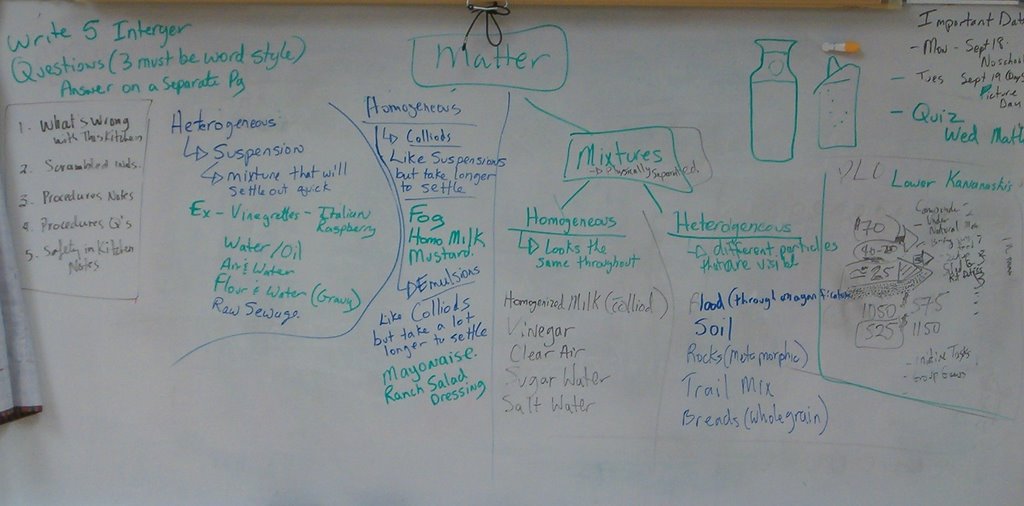 Write 5 Interger
Questions (3 must be word style)
Answer on a Separate Pg
1. What's Wrong
with This Kitchen
2. Scrambled Wds.
3. Procedures Notes
4. Procedures Q's
5. Safety in Kitchen
Notes
Heterogeneous
Suspension
mixture that will
settle out quick
Ex - Vinegrettes - Italian
Raspberry
Water/Oil
Air & Water
Flour & Water (Gravy)
Raw Sewage
Homogeneous
Colliods
Like Suspensions
but take longer
to settle
Fog
Homo Milk
Mustard.
Emulsions
Like Colliods
but take a lot
longer to settle
Mayonaise.
Ranch Salad
Dressing
Matter
Mixtures
Physically separated.
Homogeneous
Looks the
same throughout
Homogenized Milk (Colliod)
Vinegar
Clear Air
Sugar Water
Salt Water
Heterogeneous
different particles
that are visible
(through
Soil
Rocks (metamorphic)
Trail Mix
Breads (whole grain)
Important Dat
- Mon - Sept 18.
No school
- Tues Sept 19
Picture
Day
- Quiz
Wed Math
Lower Kananaskis
1050
525
575
1150